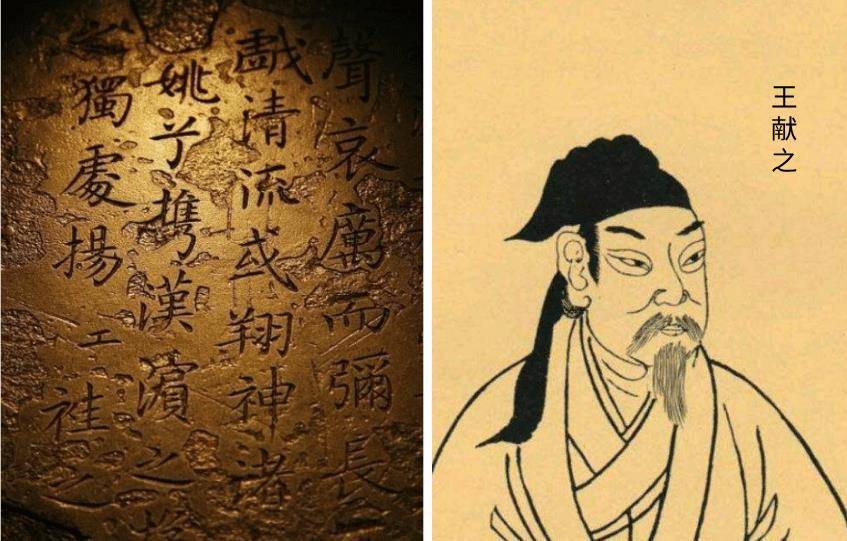 聲哀厲而彌長
戲清流或翔神渚
姚兮攜漢濱之
之獨處揚工袿之
王献之